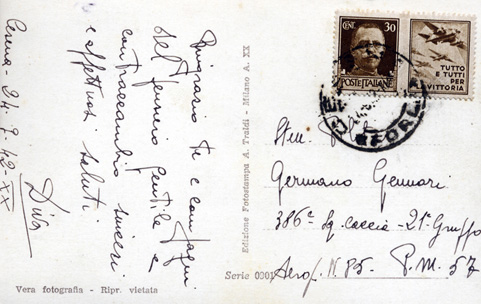 Cervia - 24.7.42-XX
Ringrazio te e compagni
del pensiero gentile e
contraccambio sinceri
e affettuosi saluti
Diva
Vera fotografia - Ripr. vietata
Edizione Fotostampa A. Traldi - Milano A. XX
Serie 0901
CENT. 30
POSTE ITALIANE
TUTTO
E TUTTI
PER
VITTORIA
FORLI
Germano Gennari
386ª Sq. Caccia - 21° Gruppo
Aerop. N. 85. P.M. 57